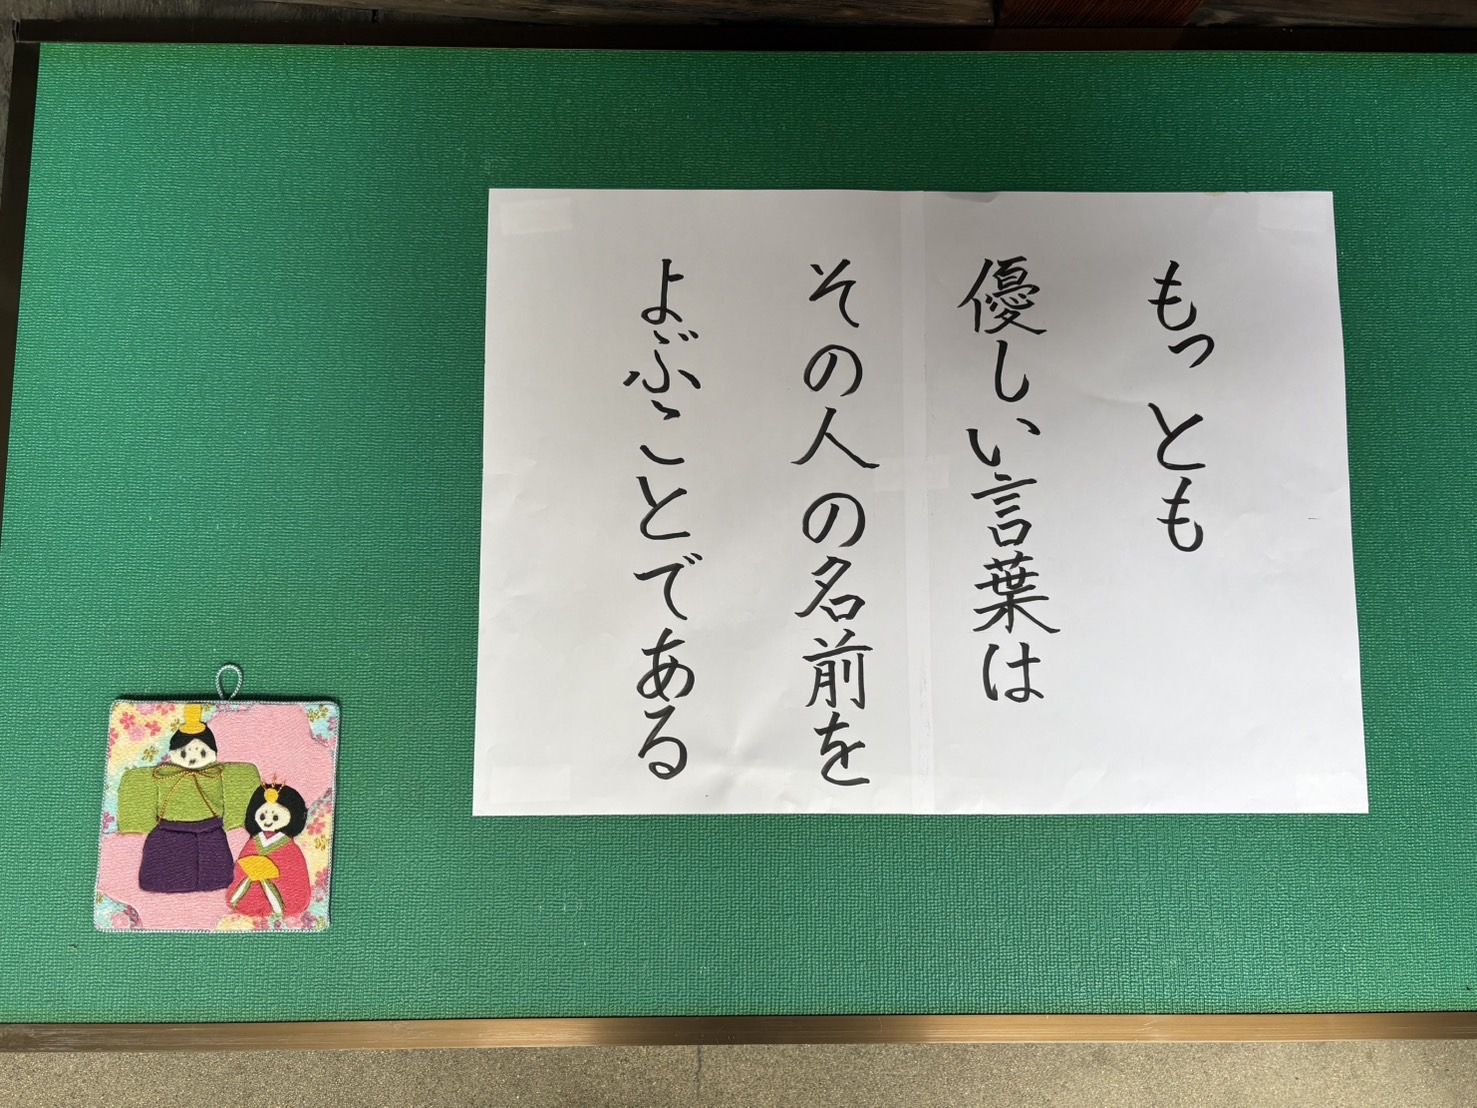 もっとも
優しい言葉は
その人の名前を
よぶことである